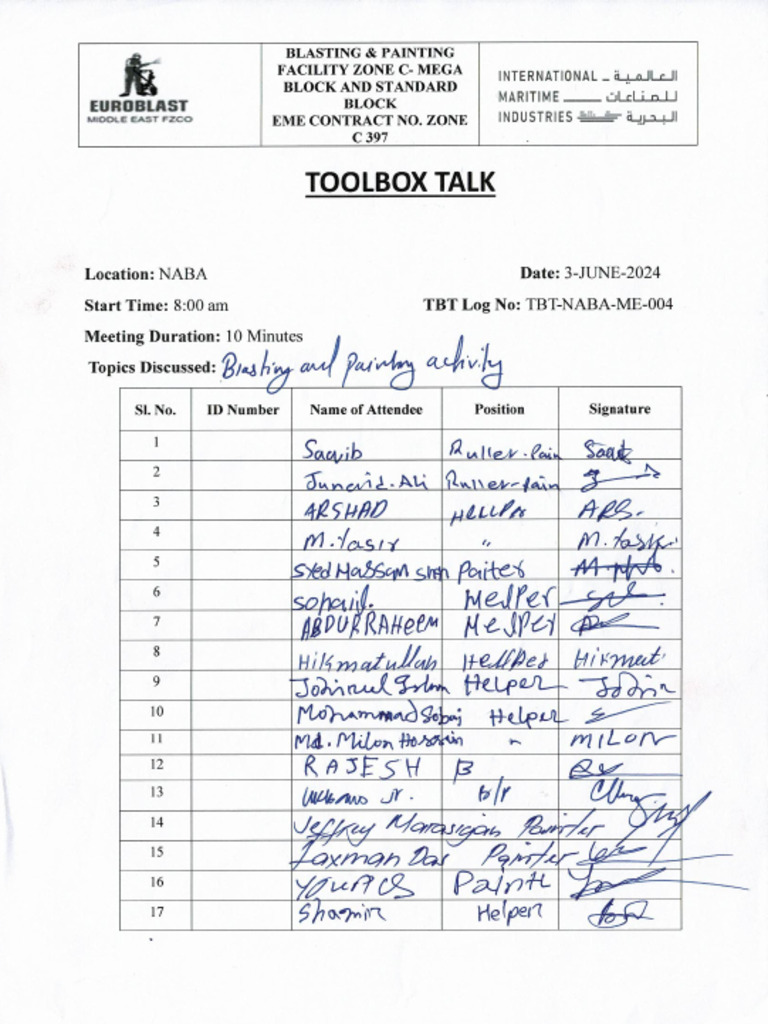 EUROBLAST
MIDDLE EAST FZCO
BLASTING & PAINTING
FACILITY ZONE C- MEGA
BLOCK AND STANDARD
BLOCK
EME CONTRACT NO. ZONE
C 397
INTERNATIONAL العـالمـيـة
MARITIME للـصنـاعـات
INDUSTRIES البـحريـة
TOOLBOX TALK
Location: NABA Date: 3-JUNE-2024
Start Time: 8:00 am TBT Log No: TBT-NABA-ME-004
Meeting Duration: 10 Minutes
Topics Discussed: Blasting and painting activity
Sl. No. ID Number Name of Attendee Position Signature
1 Saqib
2 Junaid. Ali
3 ARSHAD ARS.
4 M. Yasir " M. Yasir
5 Syed Hassam Shah Paiter
6 sohail.
7 ABDURRAHeem
8 Hikmatullah Hikmat
9 Helper
10 Mohammad Helper
11 Md. Milon Hossain " MILON
12 RAJESH B
13 Jr. B/P
14 Jeffrey Marasigan Painter
15 Laxman Das Painter
16
17 Shamir Helper